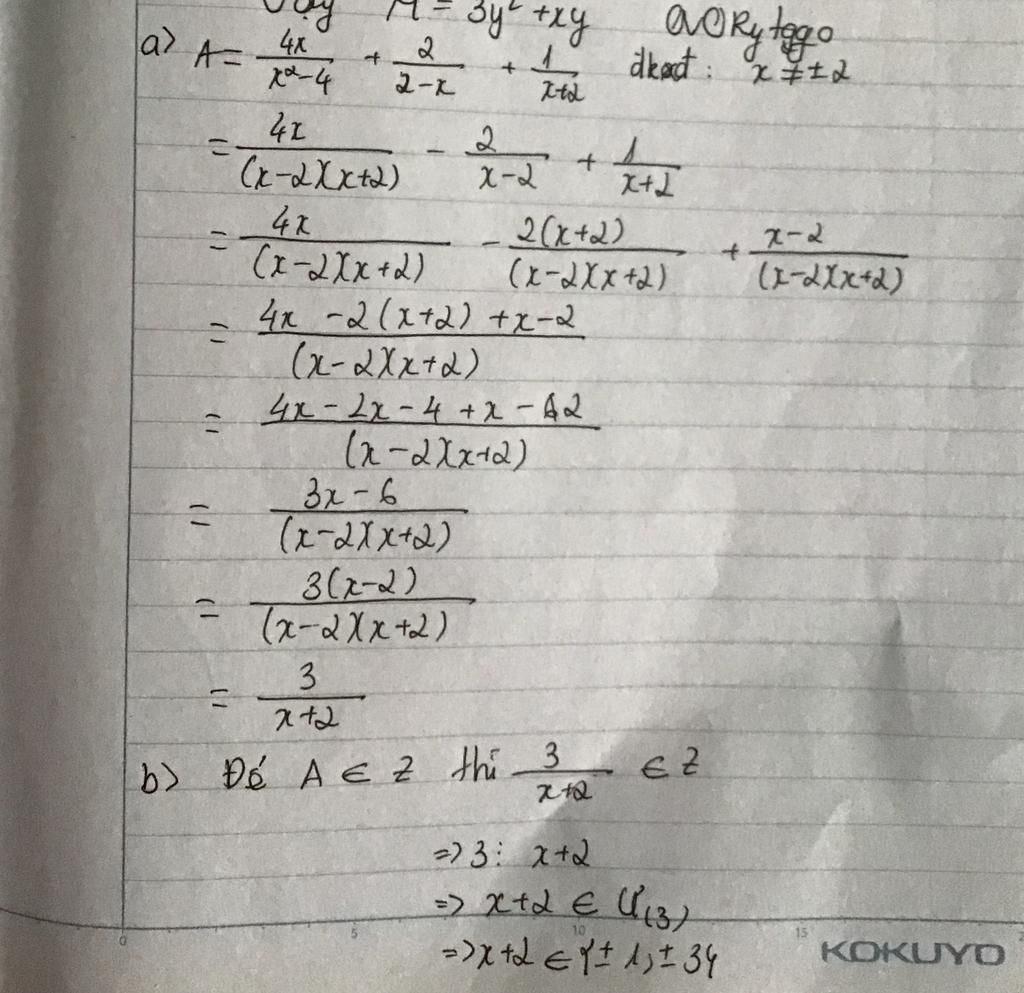 Vậy M = 3y² + xy
a) A = 4x/(x²-4) + 2/(2-x) + 1/(x+2) đkxđ: x ≠ ±2
= 4x/((x-2)(x+2)) - 2/(x-2) + 1/(x+2)
= 4x/((x-2)(x+2)) - 2(x+2)/((x-2)(x+2)) + (x-2)/((x-2)(x+2))
= (4x - 2(x+2) + x-2)/((x-2)(x+2))
= (4x - 2x - 4 + x - 2)/((x-2)(x+2))
= (3x - 6)/((x-2)(x+2))
= 3(x-2)/((x-2)(x+2))
= 3/(x+2)
b) Để A ∈ Z thì 3/(x+2) ∈ Z
=> 3 ⋮ x+2
=> x+2 ∈ Ư(3)
=> x+2 ∈ {±1, ±3}
0 5 10 15
KOKUYO